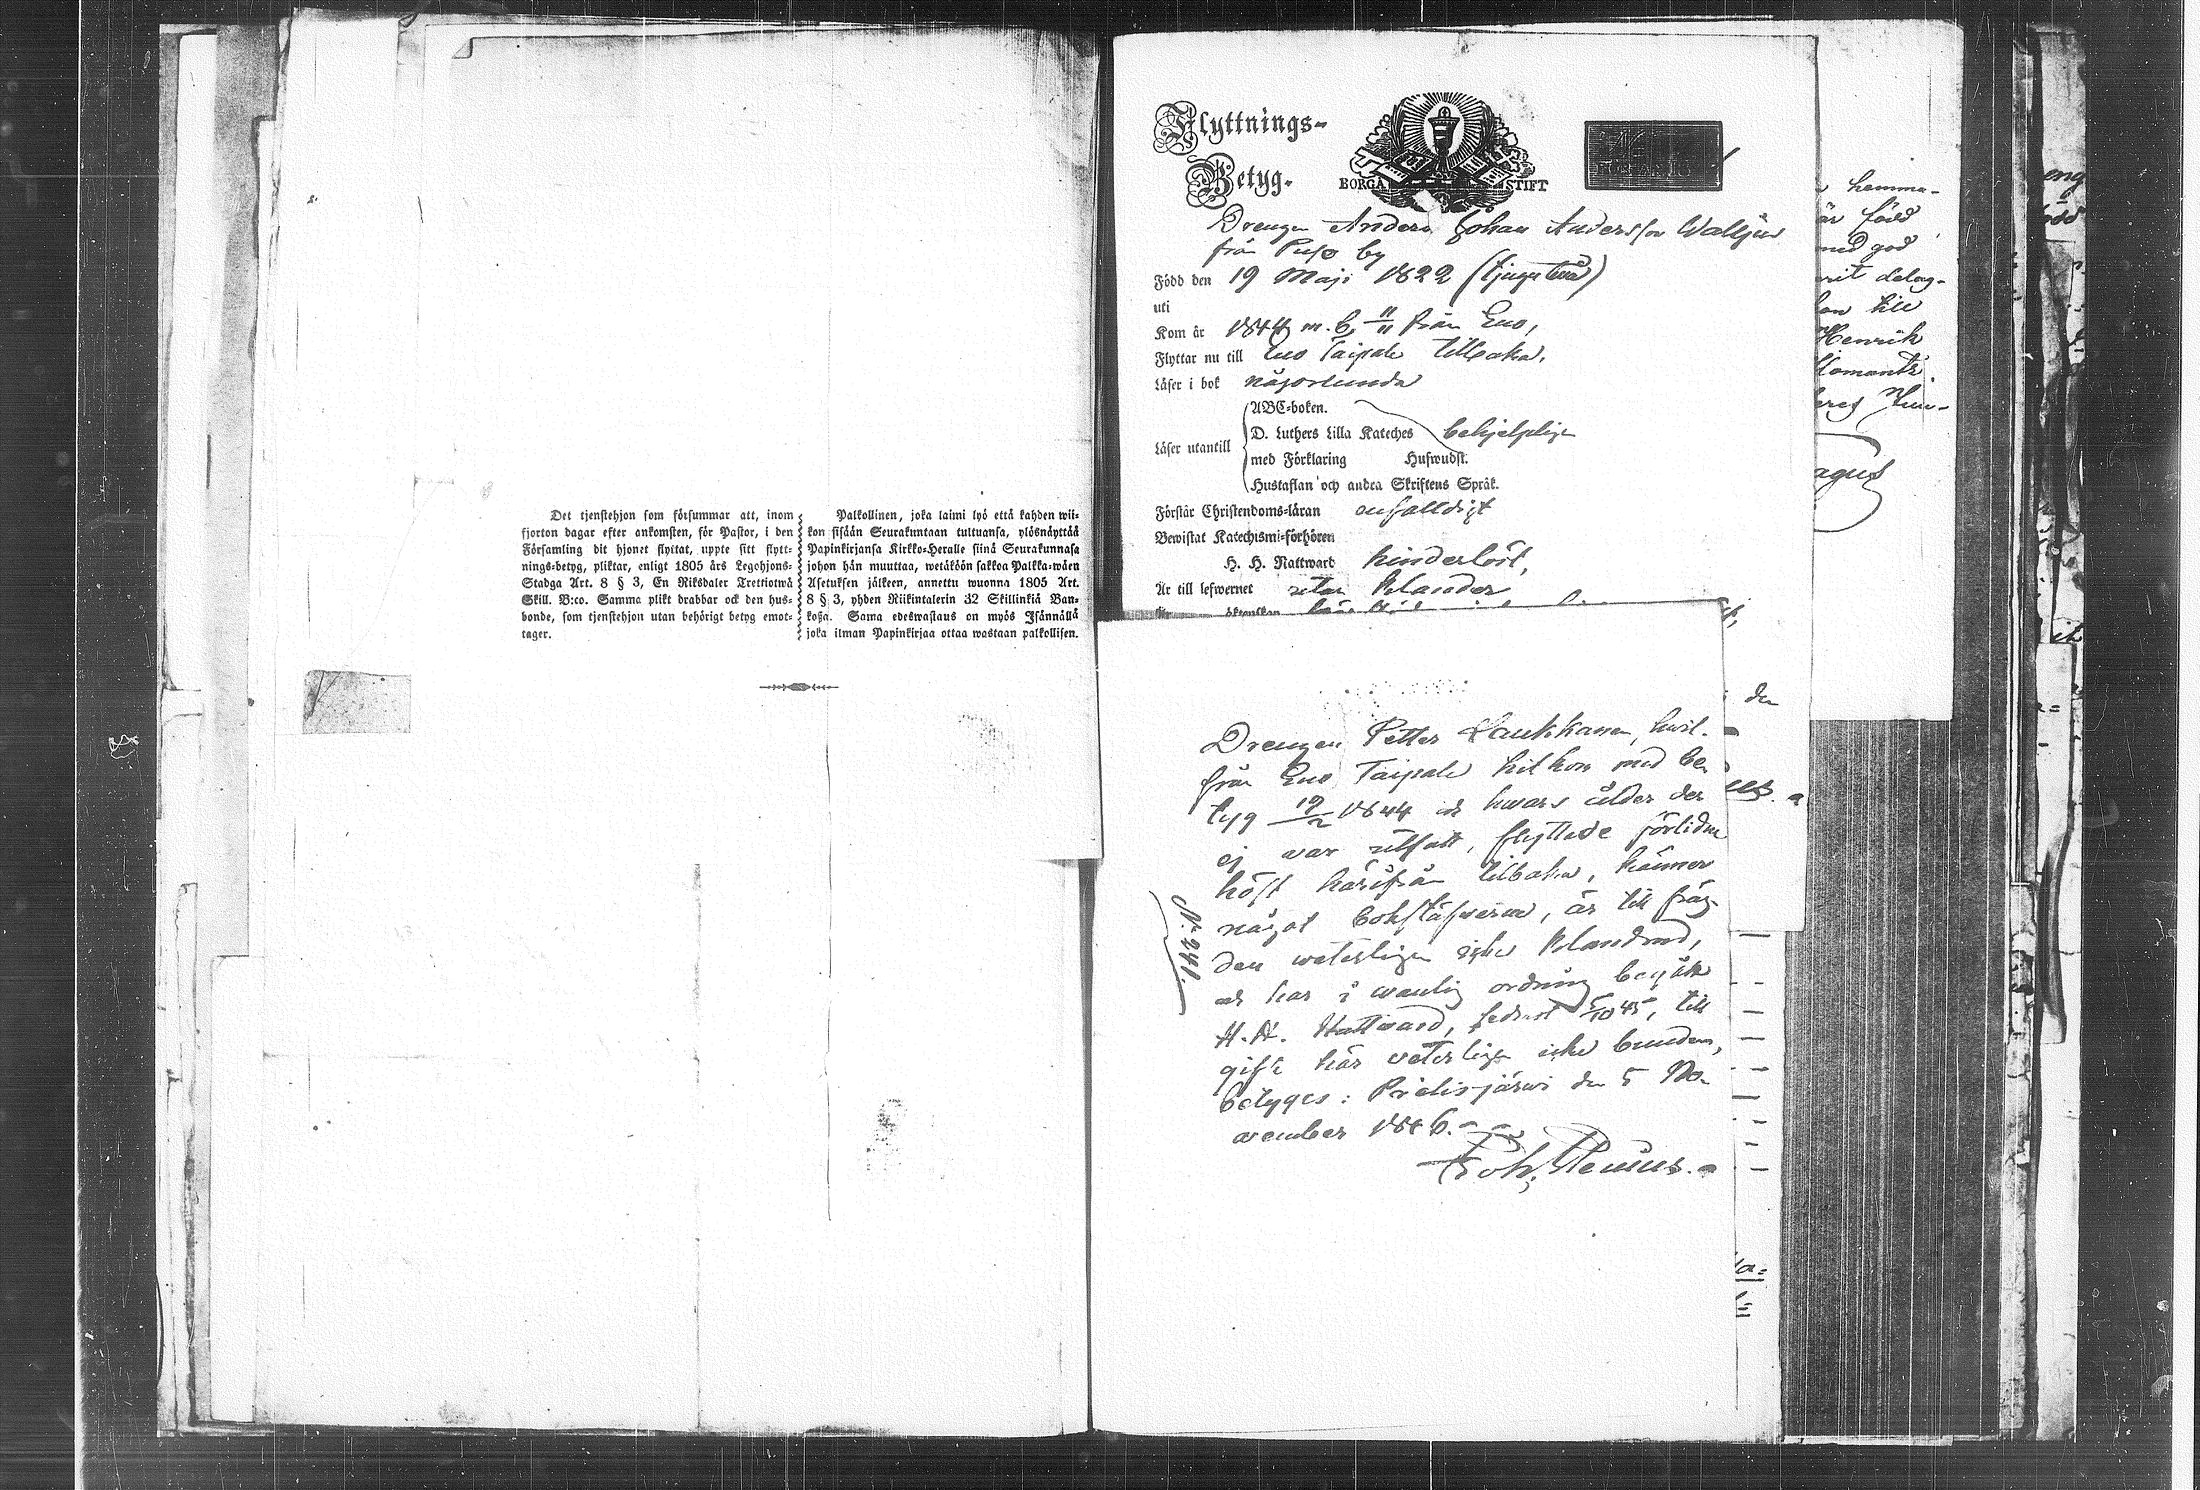 Det tjenstehjon som försummar att, inom
fjorton dagar efter ankomsten, för Pastor, i den
Församling dit hjonet flyttat, uppte sitt flytt-
nings-betyg, pliktar, enligt 1805 års Legohjons-
Stadga Art. 8 § 3, En Riksdaler Trettiotwå
Skill. B:co. Samma plikt drabbar ock den hus-
bonde, som tjenstehjon utan behörigt betyg emot-
tager.
Palkollinen, joka laimi lyö että kahden wii-
kon sisään Seurakuntaan tultuansa, ylösnäyttää
Papinkirjansa Kirkko-Heralle siinä Seurakunnasa
johon hän muuttaa, wetäköön sakkoa Palkka-wäen
Asetuksen jälkeen, annettu wuonna 1805 Art.
8 § 3, yhden Riikintalerin 32 Skillinkiä Ban-
koßa. Sama edeswastaus on myös Isännällä
joka ilman Papinkirjaa ottaa wastaan palkollisen.
Flyttnings-
Betyg.
BORGÅ STIFT
Drengen Anders Johan Andersson Walljus
från Puso by
Född den 19 Maji 1822 (tjugutwå)
uti
Kom år 1844 m. b. 11/11 från Eno,
Flyttar nu till Eno Taipale tillbaka.
Läser i bok någorlunda
Läser utantill
ABC-boken.
D. Luthers Lilla Kateches behjelpligt
med Förklaring Hufwudst.
Hustaflan och andra Skriftens Språk.
Förstår Christendoms-läran enfalldigt
Bewistat Katechismi-förhören
H. H. Nattward hinderlöst,
Är till lefwernet utan klander
hemma-
är född
med god
delag-
till
Henrik
Ilomants
agus
den
Drengen Petter Laukkanen, hwil.
från Eno Taipale hit kom med be
tyg 19/2 1844 och hwars ålder der
ej war utsatt, flyttade förlidne
höst härifrån tillbaka, känner
något bokstäfwerne, är till fräg-
den weterligen icke klandrad,
och har i wanlig ordning begått
H. H. Nattward, sednast 5/10 45, till
gifte här weterligen icke bunden,
betyges: Pielisjärwi den 5 No-
wember 1846.
Joh. Stenius.
N: 241.